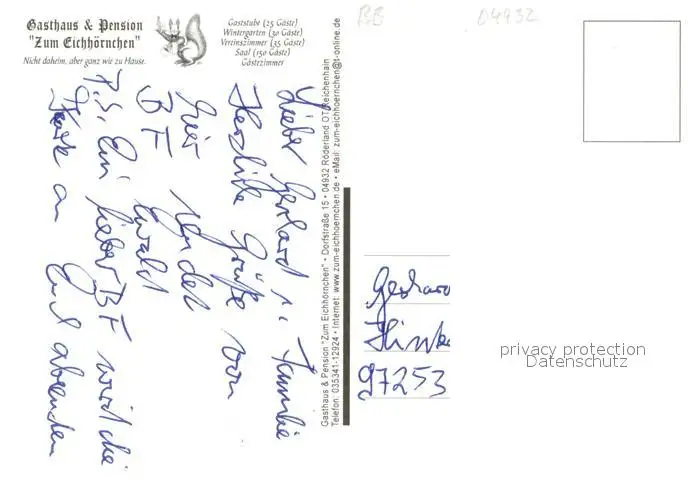 Gasthaus & Pension
"Zum Eichhörnchen"
Nicht daheim, aber ganz wie zu Hause.
Gaststube (25 Gäste)
Wintergarten (30 Gäste)
Vereinszimmer (35 Gäste)
Saal (150 Gäste)
Gästezimmer
BB 04932
Lieber Gerhard u. Familie
Herzliche Grüße von
hier
BF Ewald
P.S. Ein lieber BF wird die
Karte an absenden
Gasthaus & Pension "Zum Eichhörnchen" • Dorfstraße 15 • 04932 Röderland OT Reichenhain
Telefon: 035341-12924 • Internet: www.zum-eichhoernchen.de • eMail: zum-eichhoernchen@t-online.de
Gerhard
97253
privacy protection
Datenschutz